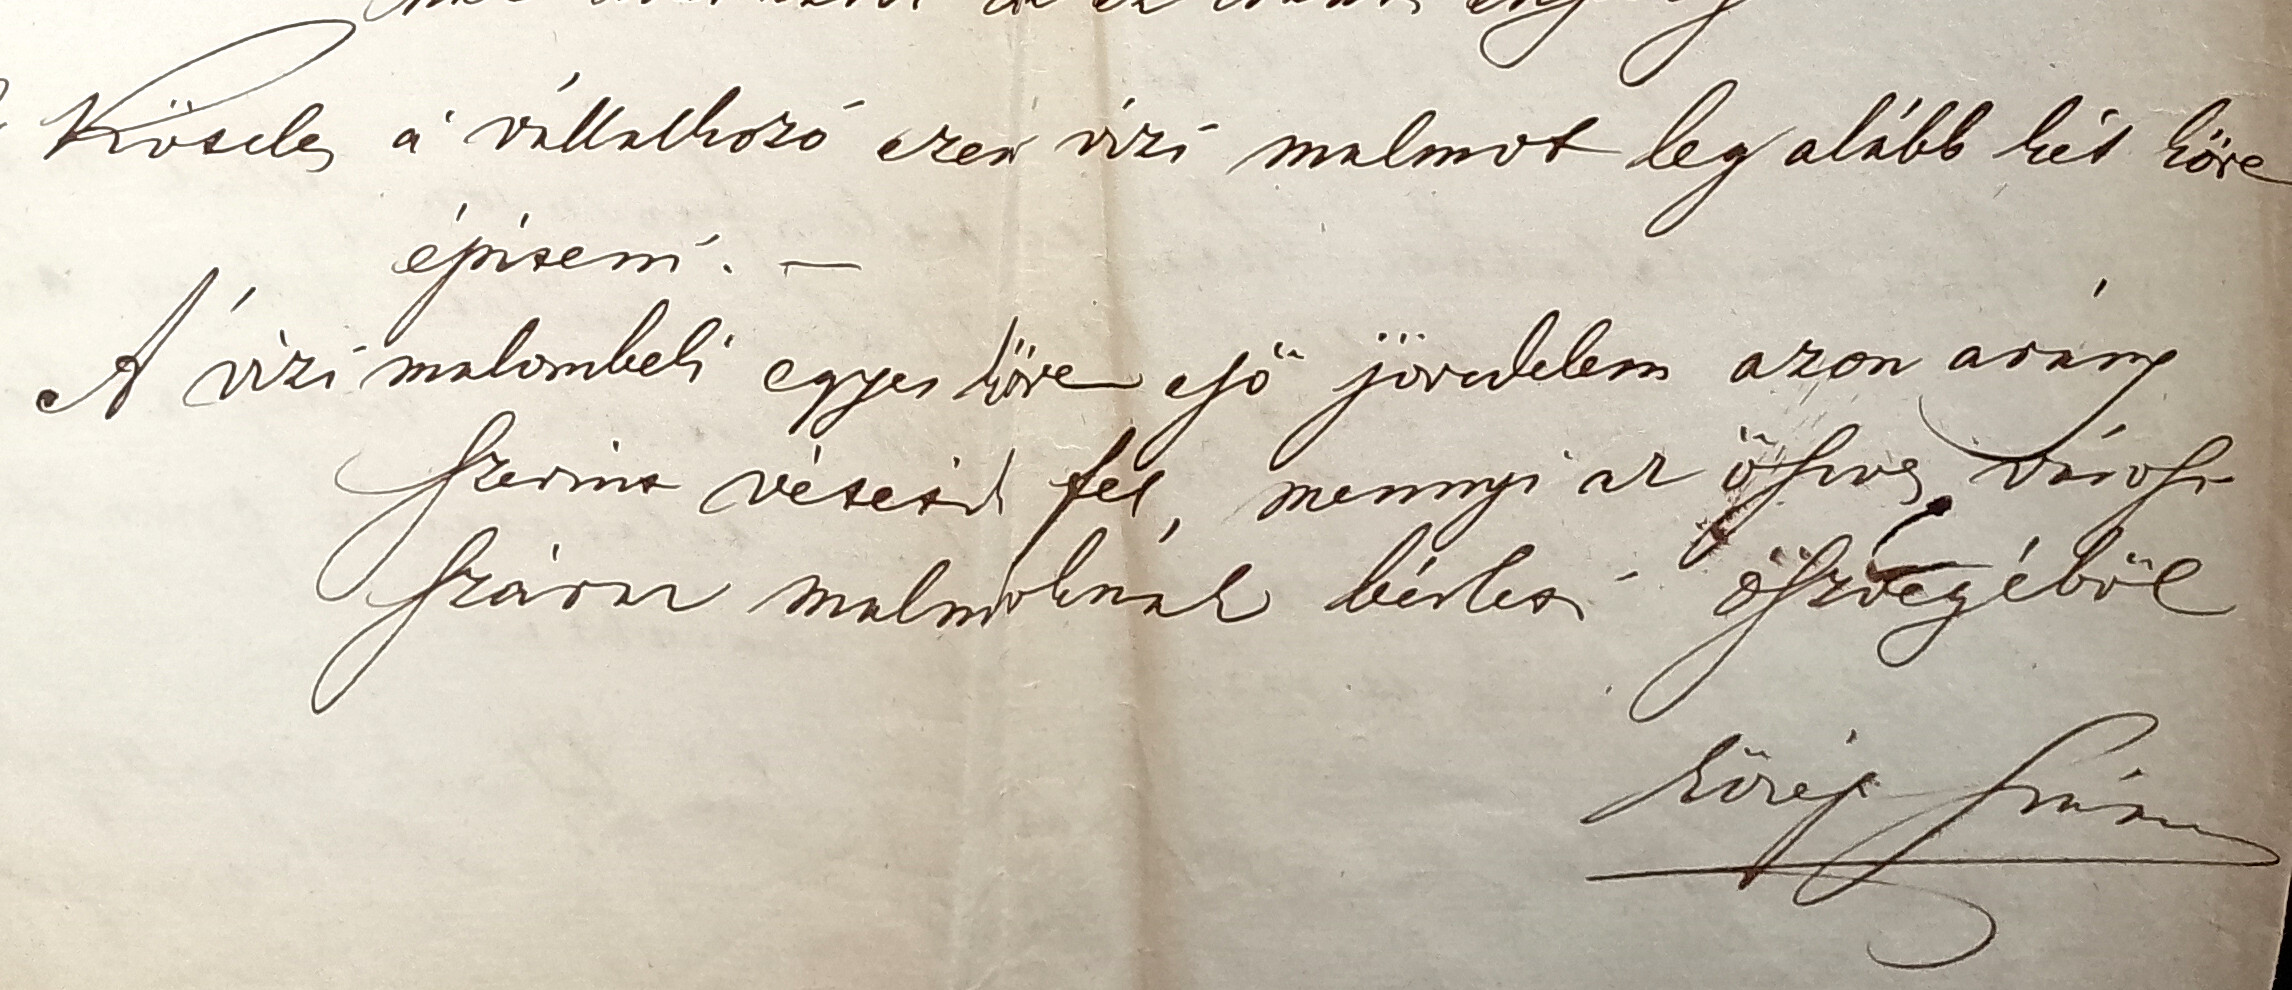 Köteles a' vállalkozó ezen vízi malmot leg alább két köre
építeni. —
A vízi malombeli egyes köre eső jövedelem azon arány
szerint vétetik fel, mennyi az öszves városi
száraz malmoknak bérleti öszvegéből
Közép